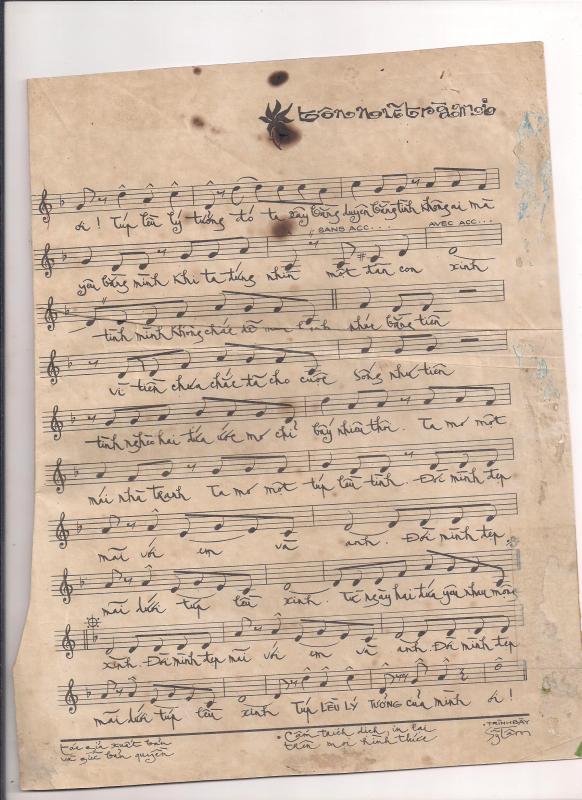 tôn nữ trà mi
ơi! Túp lều lý tưởng đó ta xây bằng duyên bằng tình không ai mà
SANS ACC... AVEC ACC...
yêu bằng mình khi ta đứng nhìn một đàn con xinh
tình mình không chắc đã nhác bằng tiên
vì tiền chưa chắc đã cho cuộc sống như tiên
tình nghèo hai đứa ước mơ chỉ bấy nhiêu thôi. Ta mơ một
mái nhà tranh Ta mơ một túp lều tình. Đời mình đẹp
mãi với em và anh. Đời mình đẹp
mãi dưới túp lều xinh. Từ ngày hai đứa yêu nhau mộng
xinh. Đời mình đẹp mãi với em và anh. Đời mình đẹp
mãi dưới túp lều xinh Túp LỀU LÝ TƯỞNG của mình ơi!
tác giả xuất bản
và giữ bản quyền
• Cấm trích dịch, in lại
trên mọi hình thức
. TRÌNH BÀY